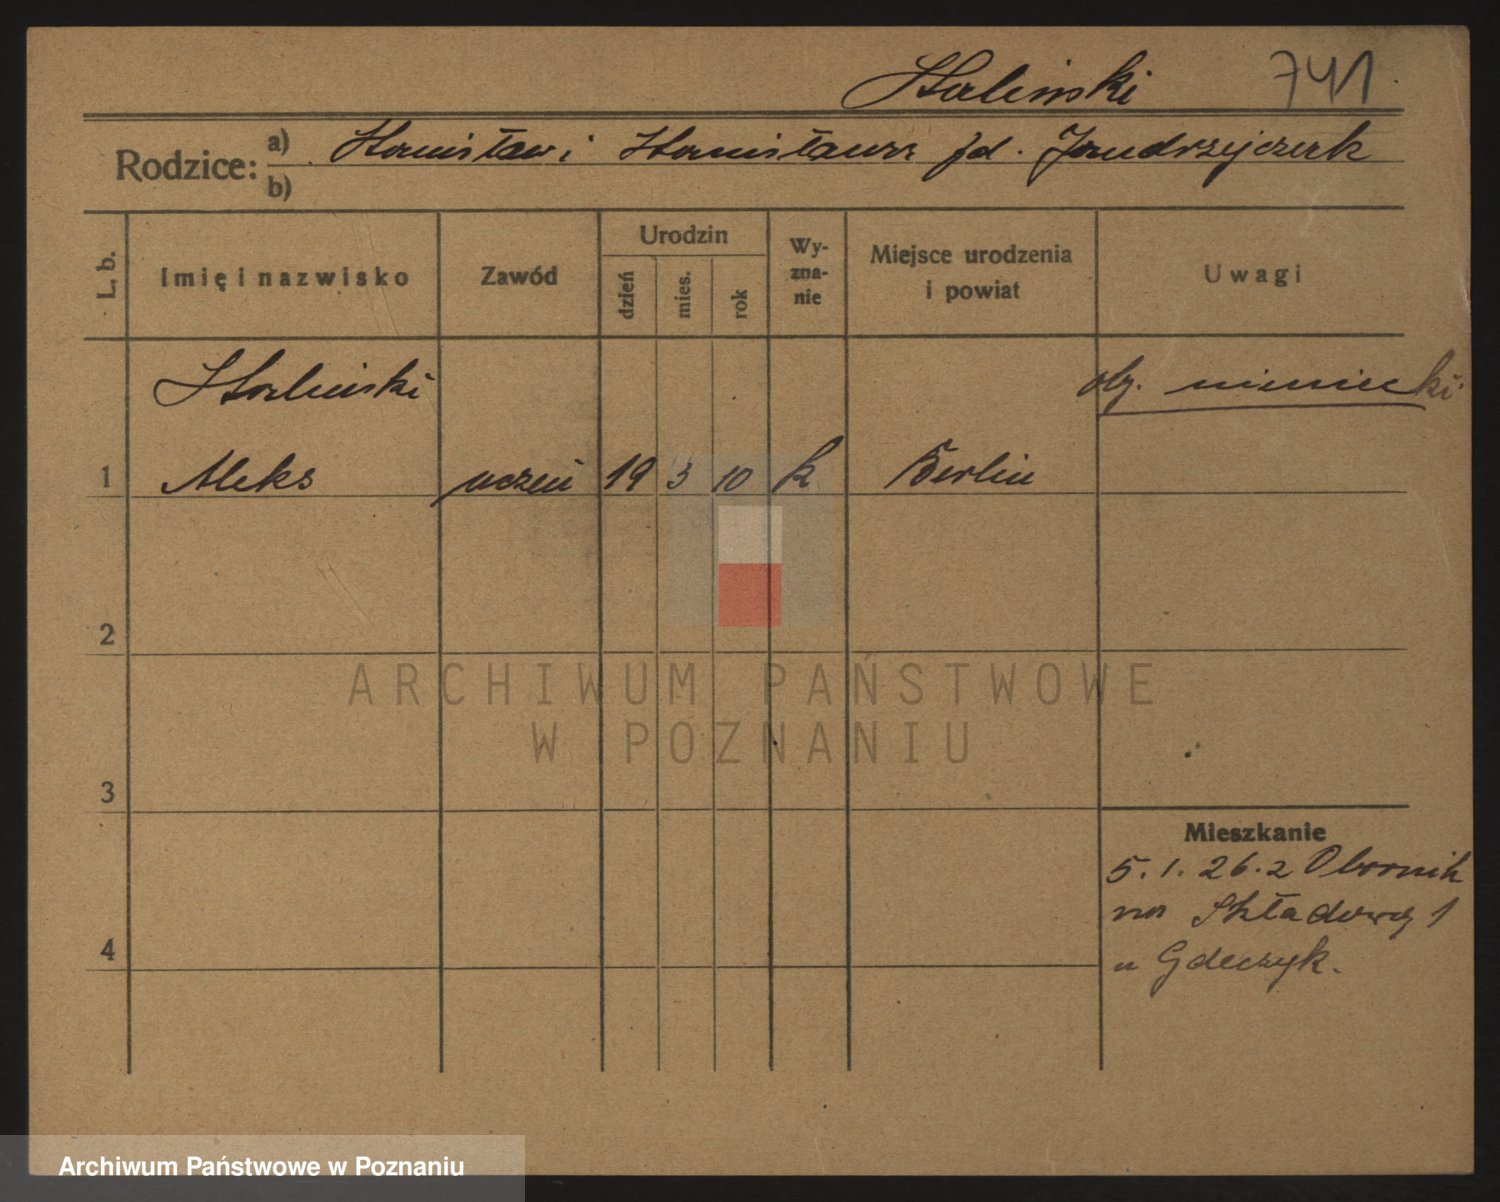 Staliński 741
Rodzice: a) Stanisław i Stanisława zd. Jandrzejczak
b)
L. b.
Imię i nazwisko
Zawód
Urodzin
dzień
mies.
rok
Wy-
zna-
nie
Miejsce urodzenia
i powiat
Uwagi
Staliński
oby. niemiecki
1 Aleks uczeń 19 3 10 k Berlin
2
ARCHIWUM PAŃSTWOWE
W POZNANIU
3
Mieszkanie
5. 1. 26. z Obornik
na Składową 1
4
u Gdeczyk.
Archiwum Państwowe w Poznaniu